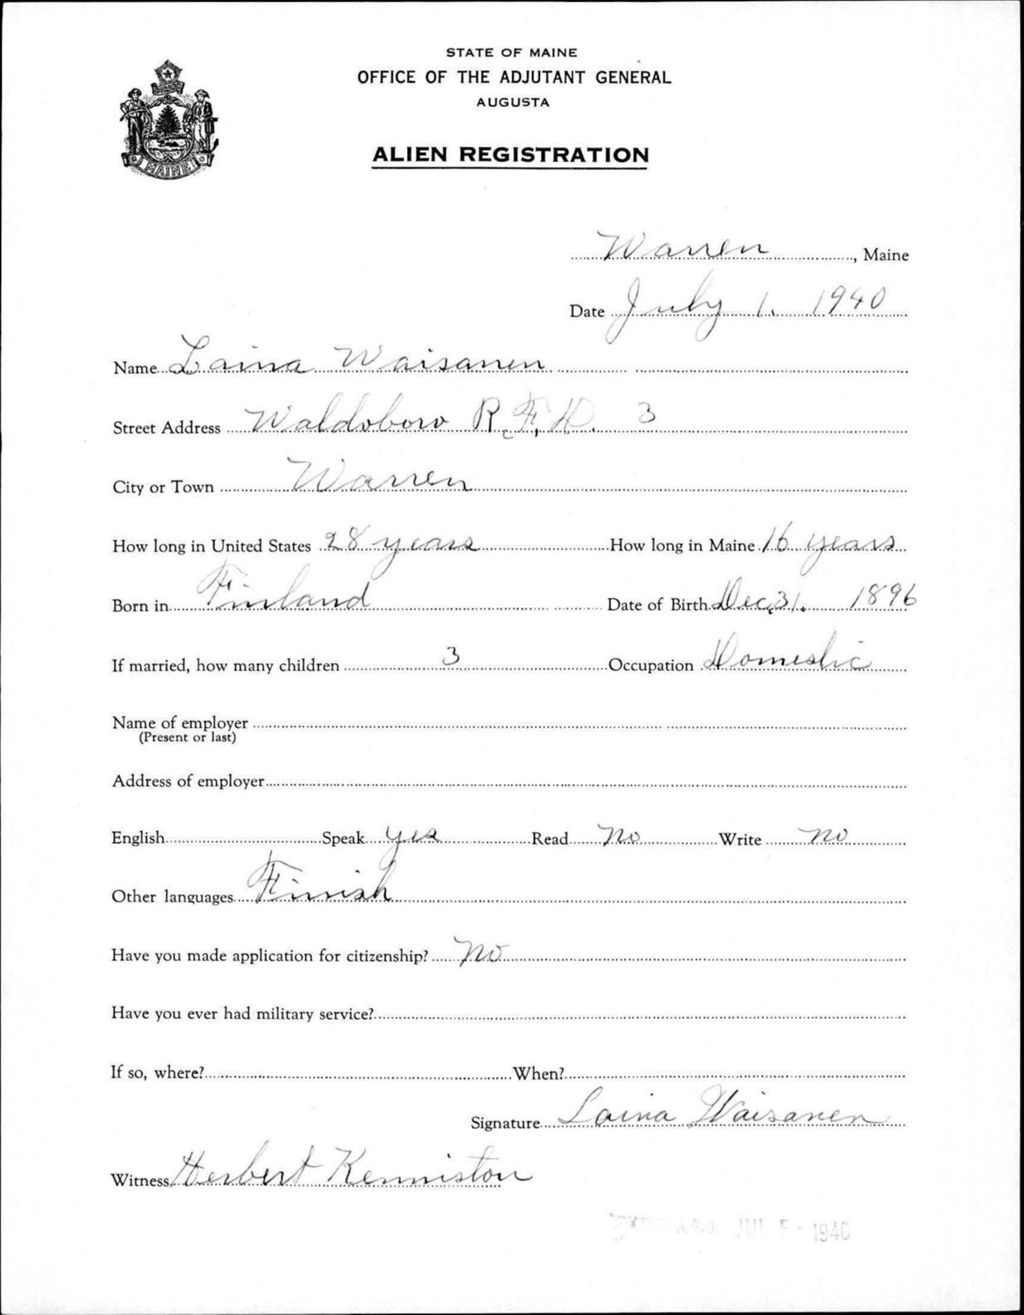 STATE OF MAINE
OFFICE OF THE ADJUTANT GENERAL
AUGUSTA
ALIEN REGISTRATION
MAINE
Warren, Maine
Date July 1, 1940
Name Laina Waisanen
Street Address Waldoboro R.F.D. 3
City or Town Warren
How long in United States 28 years How long in Maine 16 years
Born in Finland Date of Birth Dec, 31. 1896
If married, how many children 3 Occupation Domestic
Name of employer
(Present or last)
Address of employer
English Speak yes Read no Write no
Other languages Finnish
Have you made application for citizenship? no
Have you ever had military service?
If so, where? When?
Signature Laina Waisanen
Witness Herbert Kenniston
A.G.O. JUL 5 - 1940